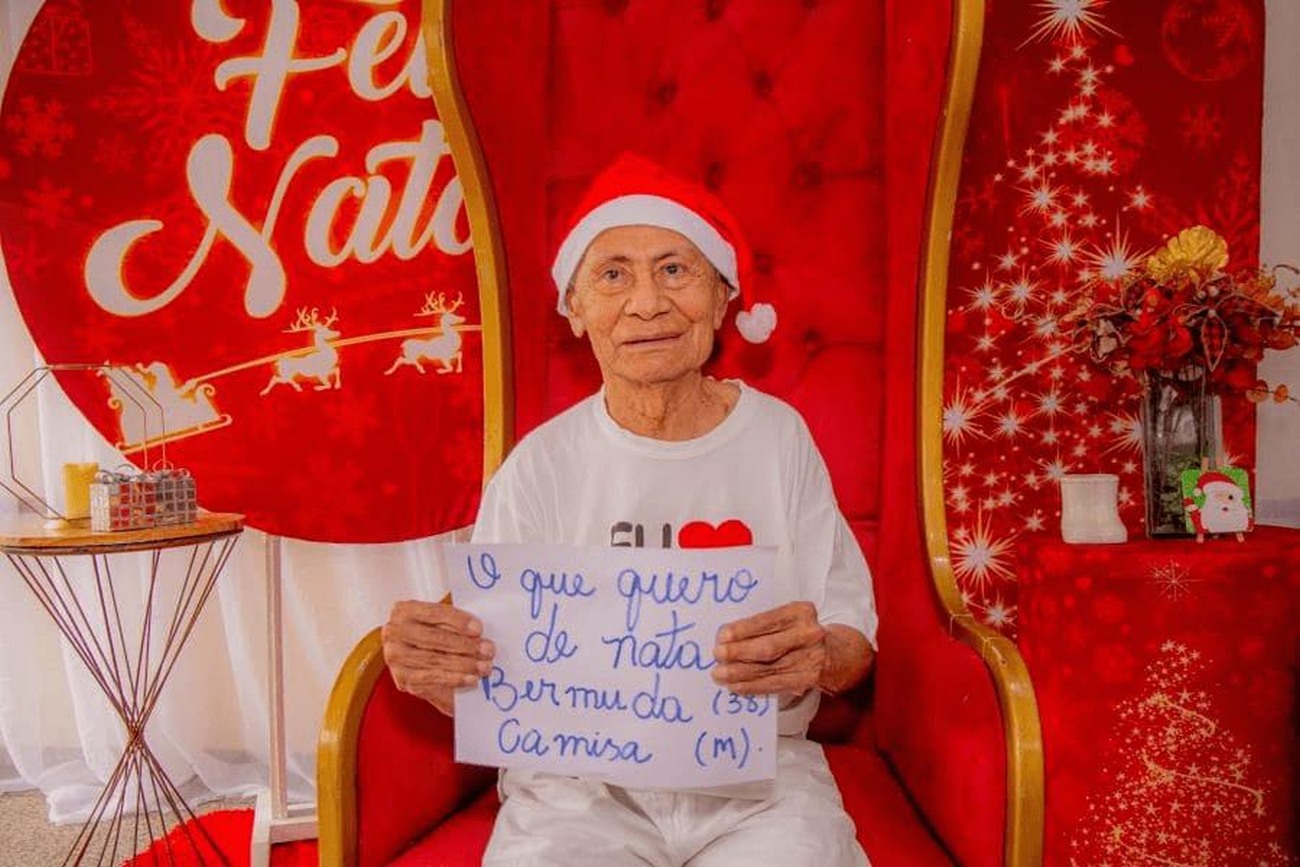 Feli
Nata
EU
O que quero
de nata
Bermuda (38)
Camisa (M).